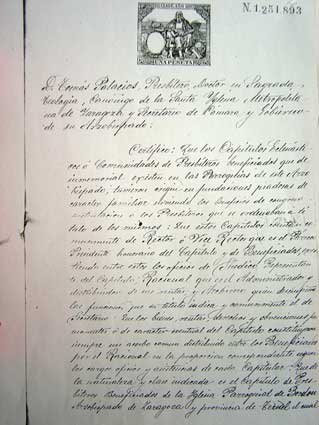 N. 1.251.893
UNA PESETA
D. Tomás Palacios, Presbítero, Doctor en Sagrada
Teología, Canónigo de la Santa Iglesia Metropolita-
na de Zaragoza y Secretario de Cámara y Gobierno
de su Arzobispado.
Certifico: Que los Capítulos Eclesiásti-
cos ó Comunidades de Presbíteros beneficiados que de
inmemorial existen en las Parroquias de este Arzo-
bispado, tuvieron origen en fundaciones piadosas de
carácter familiar
á los Presbíteros que se ordenaban á tí-
tulo de las mismas: Que estos Capítulos
de Rector ó Vice Rector que es el
Presidente honorario del Capítulo y de Beneficiados,
entre estos los oficios de Síndico
del Capítulo, Racional que es el Administrador y
distribuidor de las rentas y Archivero
las funciones que su título indica y comunmente el de
Secretario: Que los bienes, rentas, derechos y obvenciones
ó de carácter eventual del Capítulo constituyeron
siempre un acervo común distribuido entre los Beneficiados
por el Racional en la proporción correspondiente según
los cargos, oficios y asistencias de cada Capitular: Que de
la naturaleza y clase indicada es el Capítulo de Pres-
bíteros Beneficiados de la Iglesia Parroquial de Bordon
Arzobispado de Zaragoza y provincia de Teruel, el cual